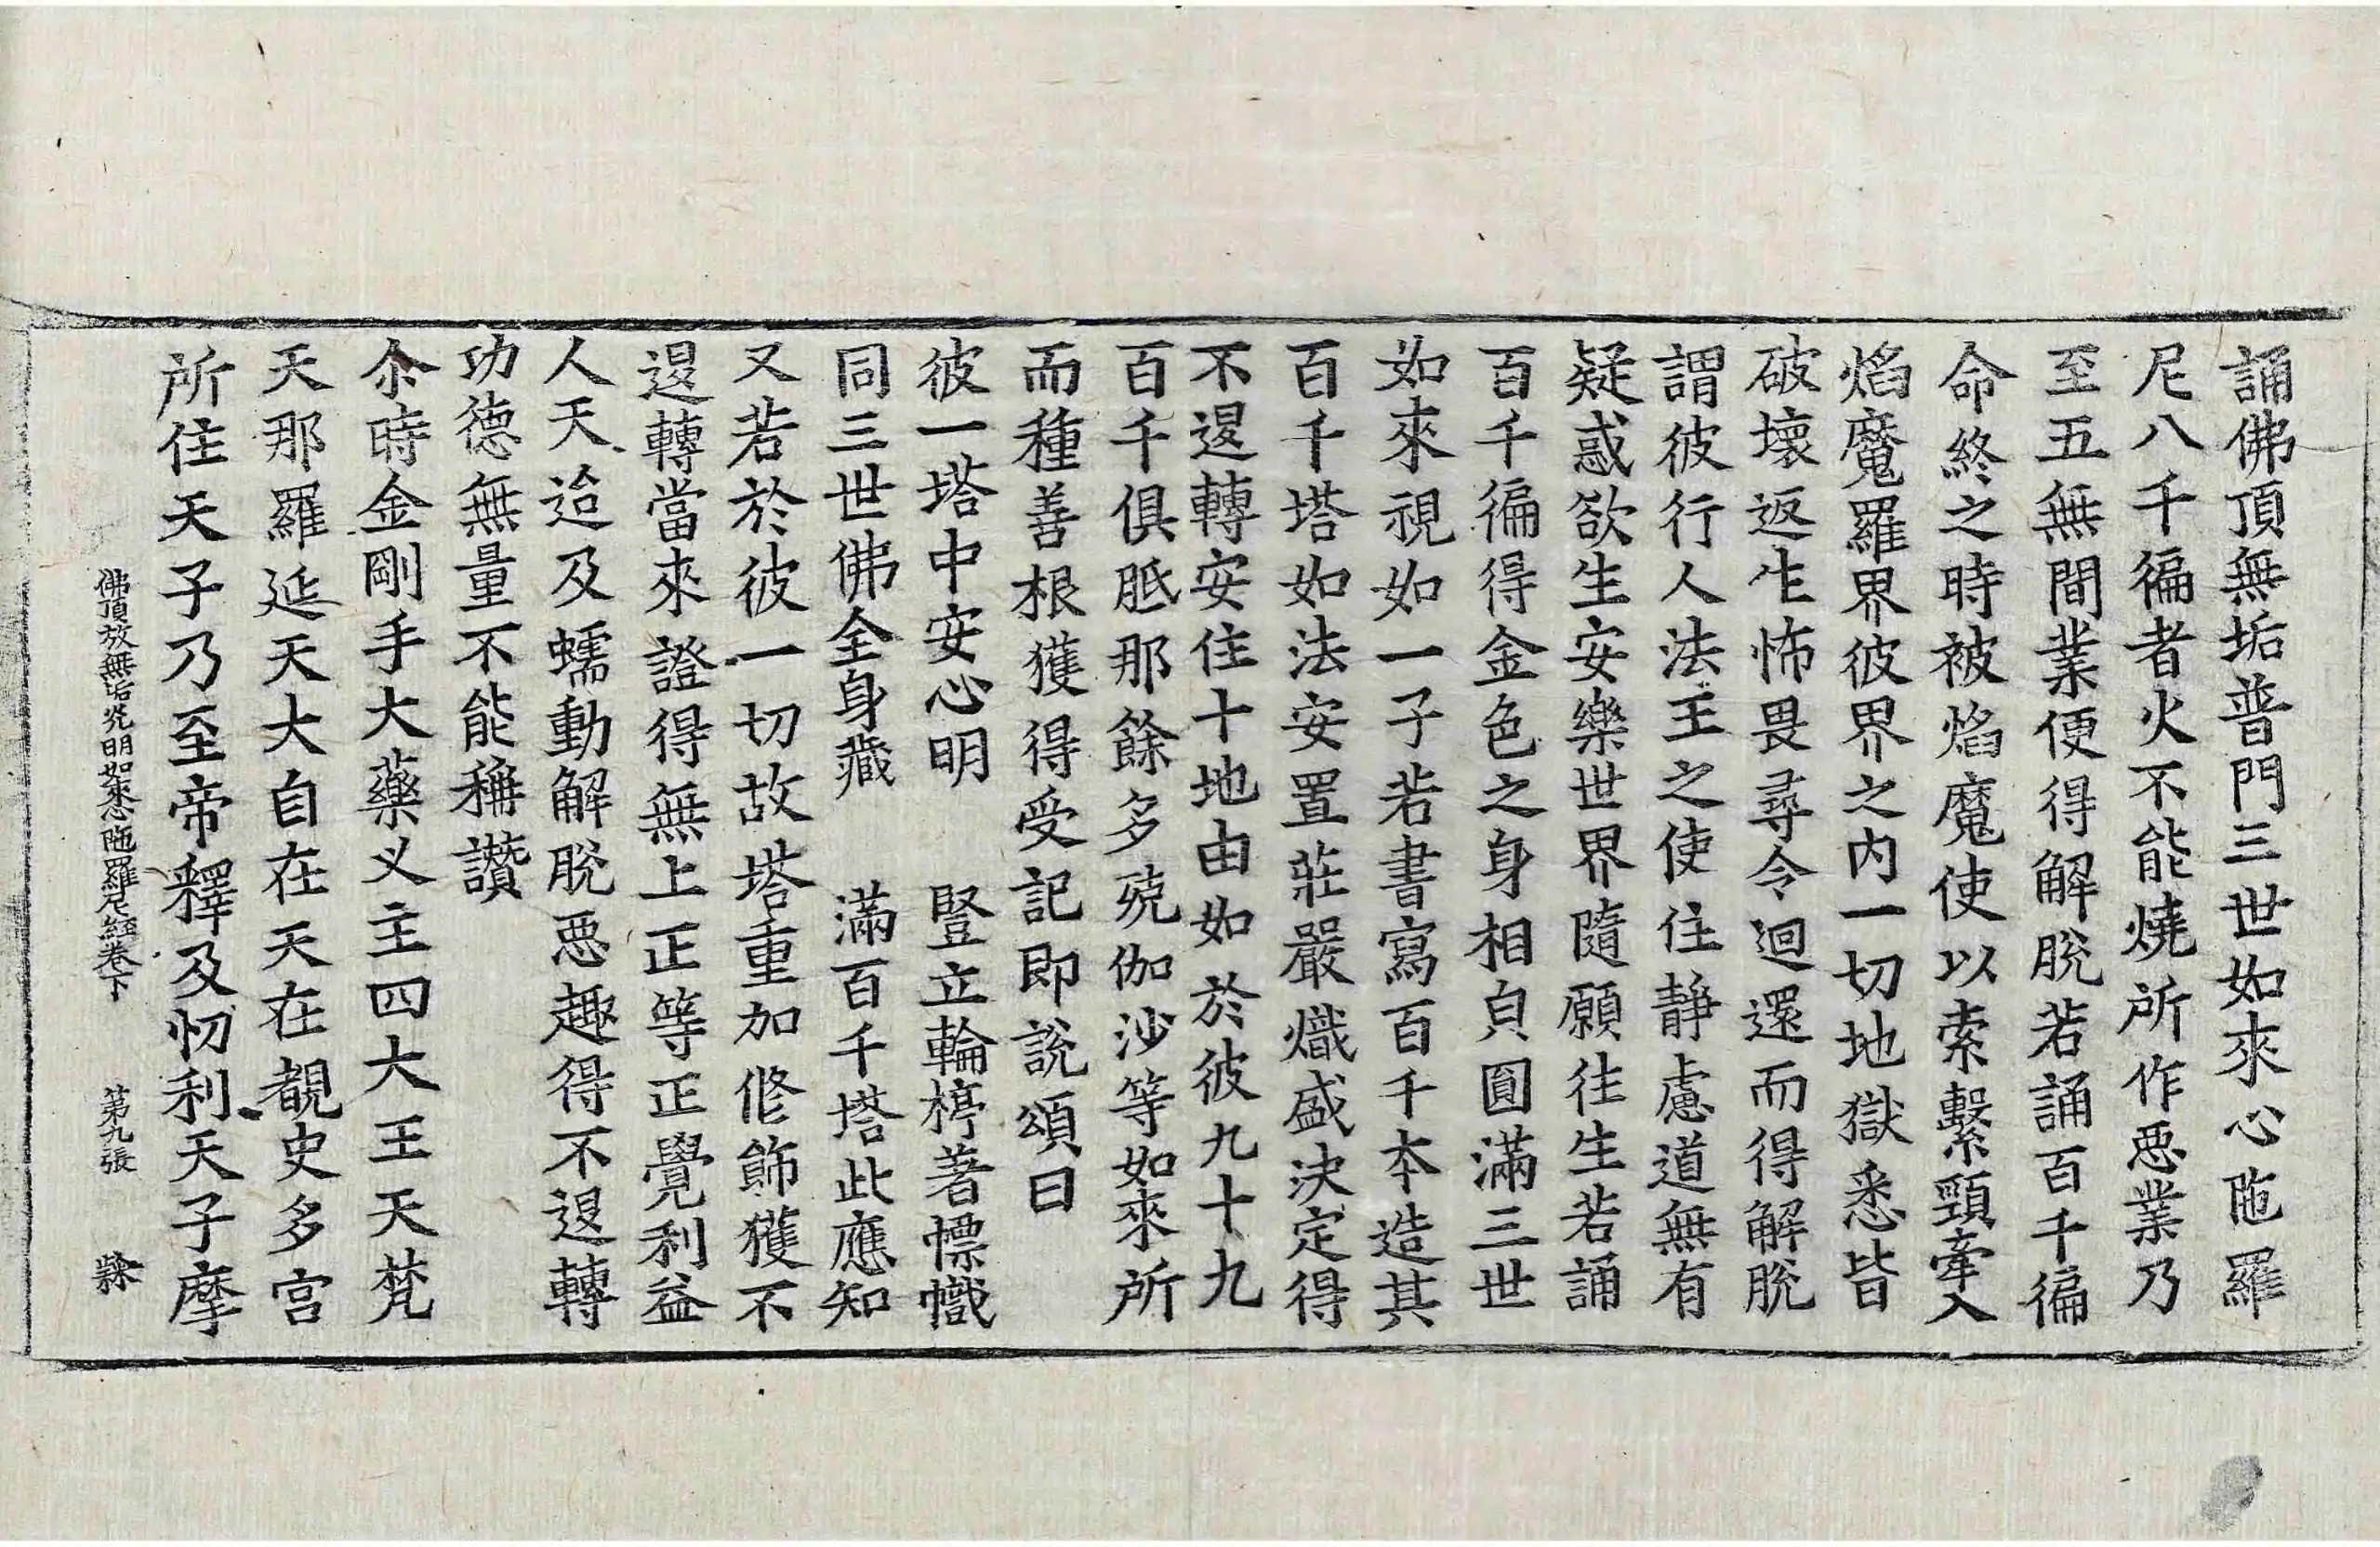 誦佛頂無垢普門三世如來心陁羅
尼八千徧者火不能燒所作惡業乃
至五無間業便得解脫若誦百千徧
命終之時被焰魔使以索繫頸牽入
焰魔羅界彼界之內一切地獄悉皆
破壞返生怖畏尋令迴還而得解脫
謂彼行人法王之使住靜慮道無有
疑惑欲生安樂世界隨願往生若誦
百千徧得金色之身相貟圓滿三世
如來視如一子若書寫百千本造其
百千塔如法安置莊嚴熾盛決定得
不退轉安住十地由如於彼九十九
百千俱胝那餘多殑伽沙等如來所
而種善根獲得受記即說頌曰
彼一塔中安心明　豎立輪橖著幖幟
同三世佛全身藏　滿百千塔此應知
又若於彼一切故塔重加修飾獲不
退轉當來證得無上正等正覺利益
人天迨及蠕動解脫惡趣得不退轉
功德無量不能稱讚
尒時金剛手大藥叉主四大王天梵
天那羅延天大自在天在覩史多宮
所住天子乃至帝釋及忉利天子摩
佛頂放無垢光明如來心陁羅尼經卷下　第九張